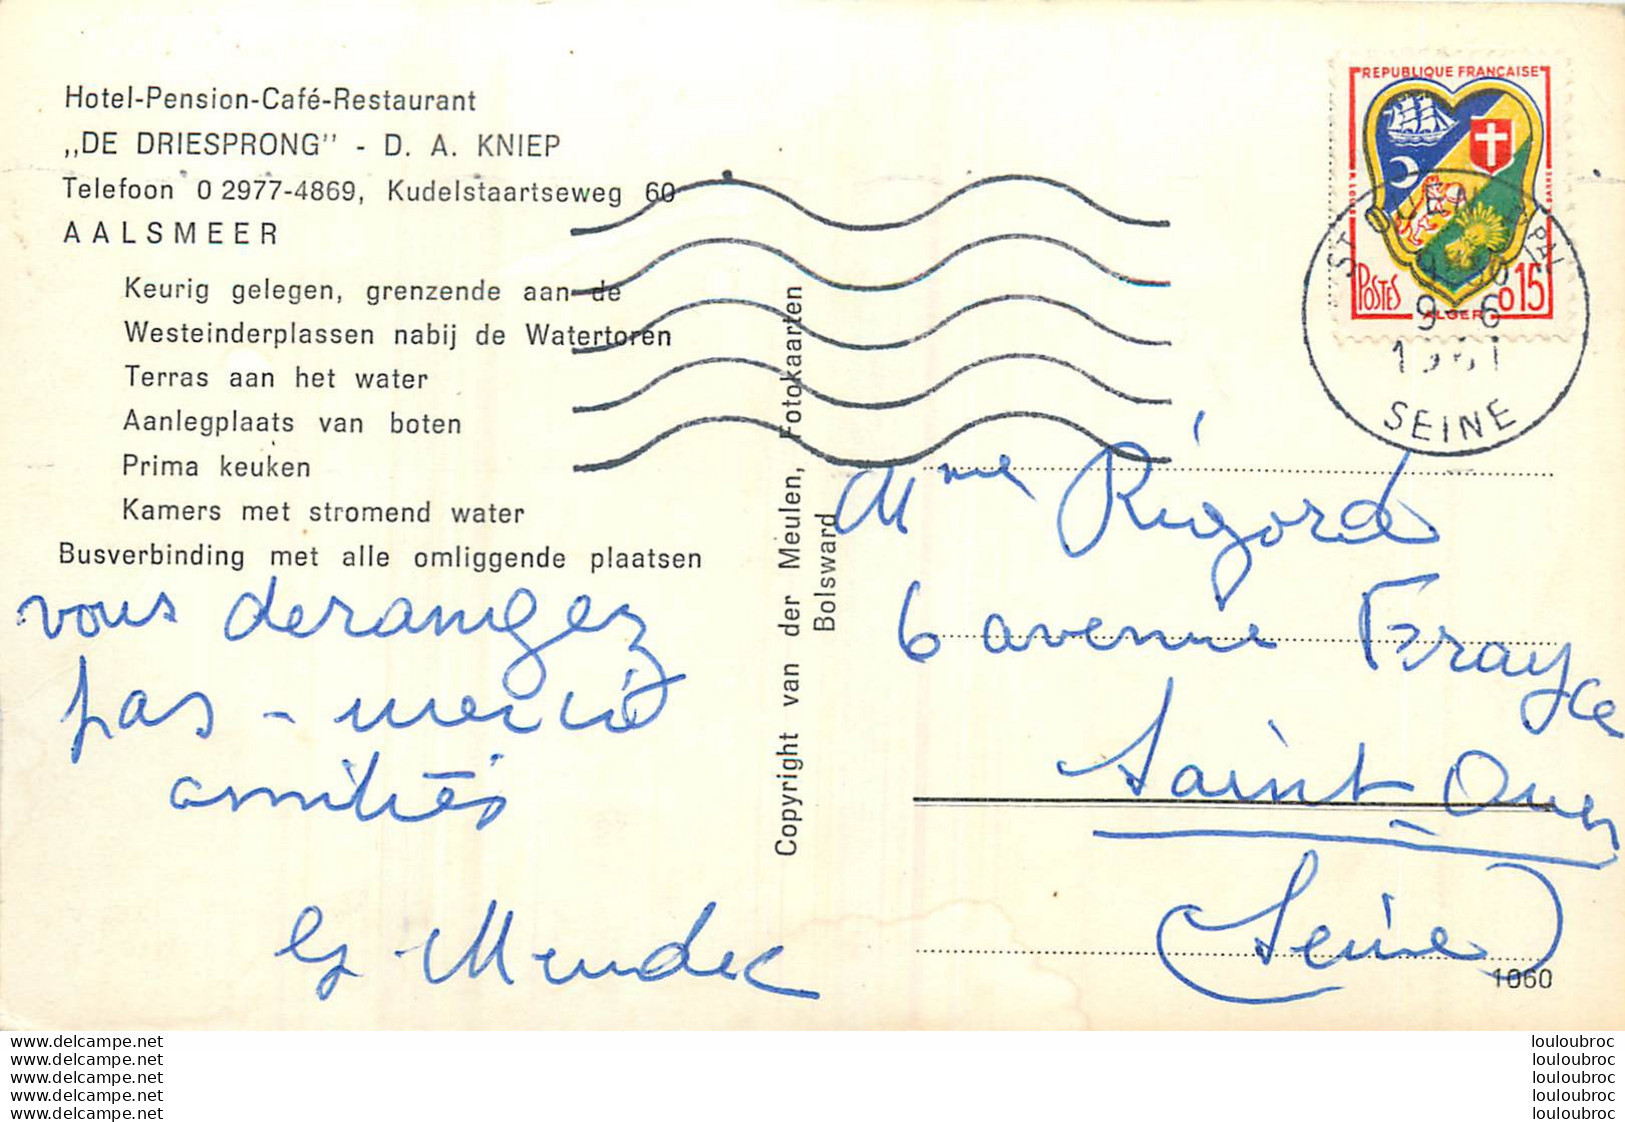 Hotel-Pension-Café-Restaurant
„DE DRIESPRONG” - D. A. KNIEP
Telefoon 0 2977-4869, Kudelstaartseweg 60
AALSMEER
Keurig gelegen, grenzende aan de
Westeinderplassen nabij de Watertoren
Terras aan het water
Aanlegplaats van boten
Prima keuken
Kamers met stromend water
Busverbinding met alle omliggende plaatsen
vous derangez
pas - merci
amitiés
G Mendec
Copyright van der Meulen, Fotokaarten
Bolsward
REPUBLIQUE FRANÇAISE
POSTES
0,15
ALGER
ST OUEN PPAL
9 - 6
1961
SEINE
Mme Rigord
6 avenue Frayce
Saint-Ouen
(Seine)
1060
www.delcampe.net
www.delcampe.net
www.delcampe.net
www.delcampe.net
www.delcampe.net
louloubroc
louloubroc
louloubroc
louloubroc
louloubroc